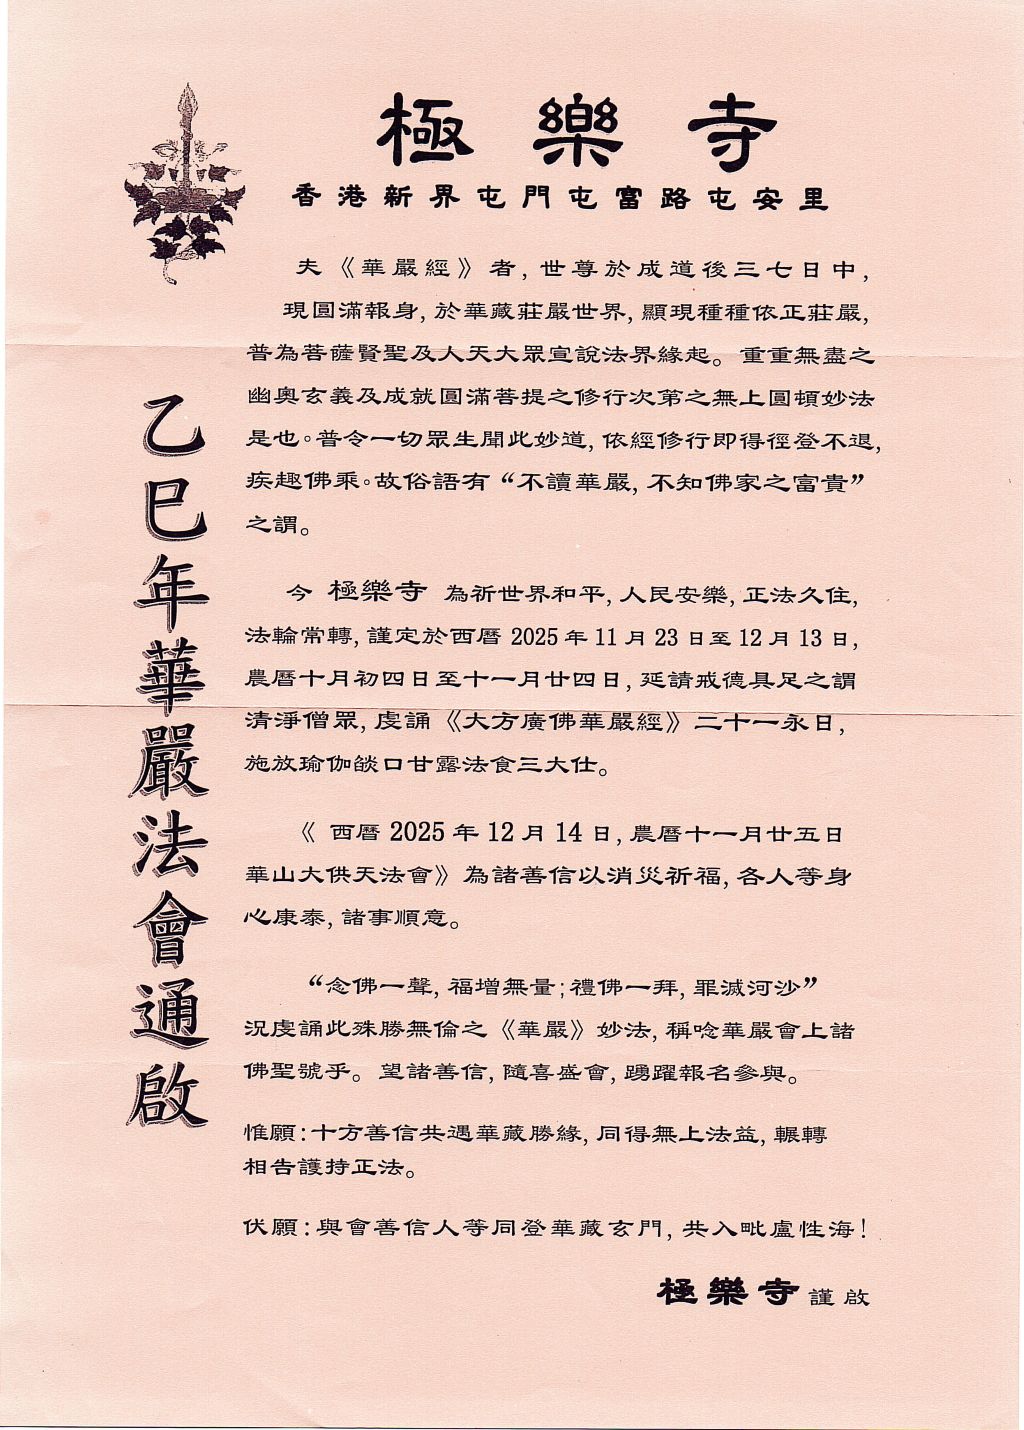 極樂寺
香港新界屯門屯富路屯安里
乙巳年華嚴法會通啟
夫《華嚴經》者,世尊於成道後三七日中,
現圓滿報身,於華藏莊嚴世界,顯現種種依正莊嚴,
普為菩薩賢聖及人天大眾宣說法界緣起。重重無盡之
幽奧玄義及成就圓滿菩提之修行次第之無上圓頓妙法
是也。普令一切眾生聞此妙道,依經修行即得徑登不退,
疾趣佛乘。故俗語有“不讀華嚴,不知佛家之富貴”
之謂。
今 極樂寺 為祈世界和平,人民安樂,正法久住,
法輪常轉,謹定於西曆 2025 年 11 月 23 日至 12 月 13 日,
農曆十月初四日至十一月廿四日,延請戒德具足之謂
清淨僧眾,虔誦《大方廣佛華嚴經》二十一永日,
施放瑜伽燄口甘露法食三大仕。
《 西曆 2025 年 12 月 14 日,農曆十一月廿五日
華山大供天法會》為諸善信以消災祈福,各人等身
心康泰,諸事順意。
“念佛一聲,福增無量;禮佛一拜,罪滅河沙”
況虔誦此殊勝無倫之《華嚴》妙法,稱唸華嚴會上諸
佛聖號乎。望諸善信,隨喜盛會,踴躍報名參與。
惟願:十方善信共遇華藏勝緣,同得無上法益,輾轉
相告護持正法。
伏願:與會善信人等同登華藏玄門,共入毗盧性海!
極樂寺 謹啟